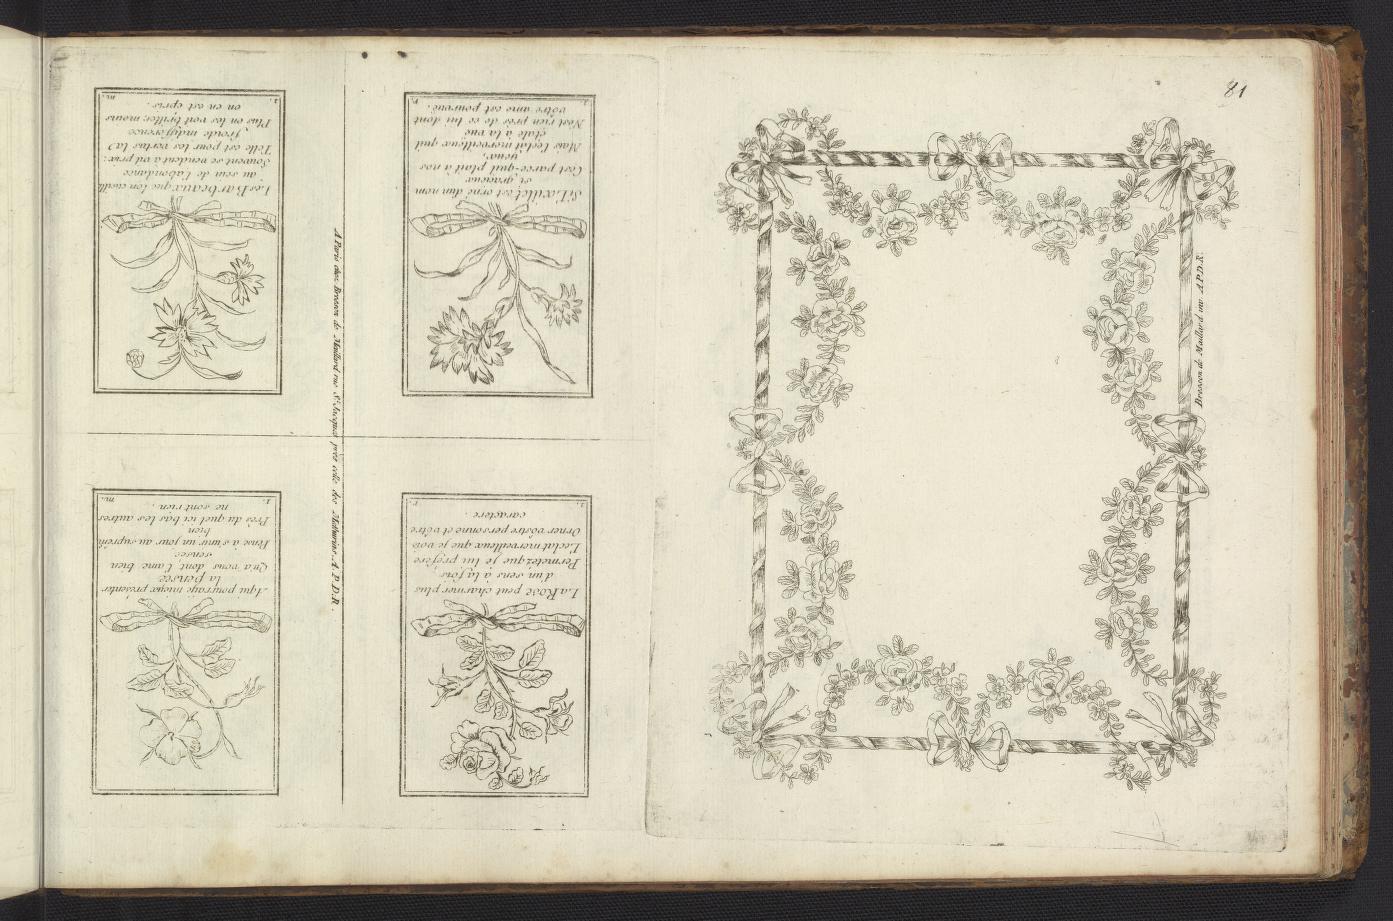 81
Les Barbeaux que l'on cueille
au sein de l'abondance
Souvent se vendent a vil prix:
Telle est pour les vertus la
froide indifference
Plus en les voit briller, moins
on en est epris.
Si L'œillet est orné d'un nom
si gracieux
C'est parce-qu'il plait à nos
yeux,
Mais l'eclat merveilleux qu'il
étale à la vue
N'est rien près de ce lui dont
vôtre ame est pourvuë.
A qui pourraije mieux presenter
la pensée
Qu'a vous dont l'ame bien
sensée
Pense à s'unir un jour au suprême
bien
Près du quel ici bas les autres
ne sont rien.
La Rose peut charmer plus
d'un sens à la fois
Permetez que je lui prefere
L'eclat merveilleux que je vois
Orner vôtre personne et vôtre
caractere.
A Paris chez Bresson de Maillard rue St. Jacques près celle des Mathurins. A. P. D. R.
Bresson de Maillard inv. A. P. D. R.